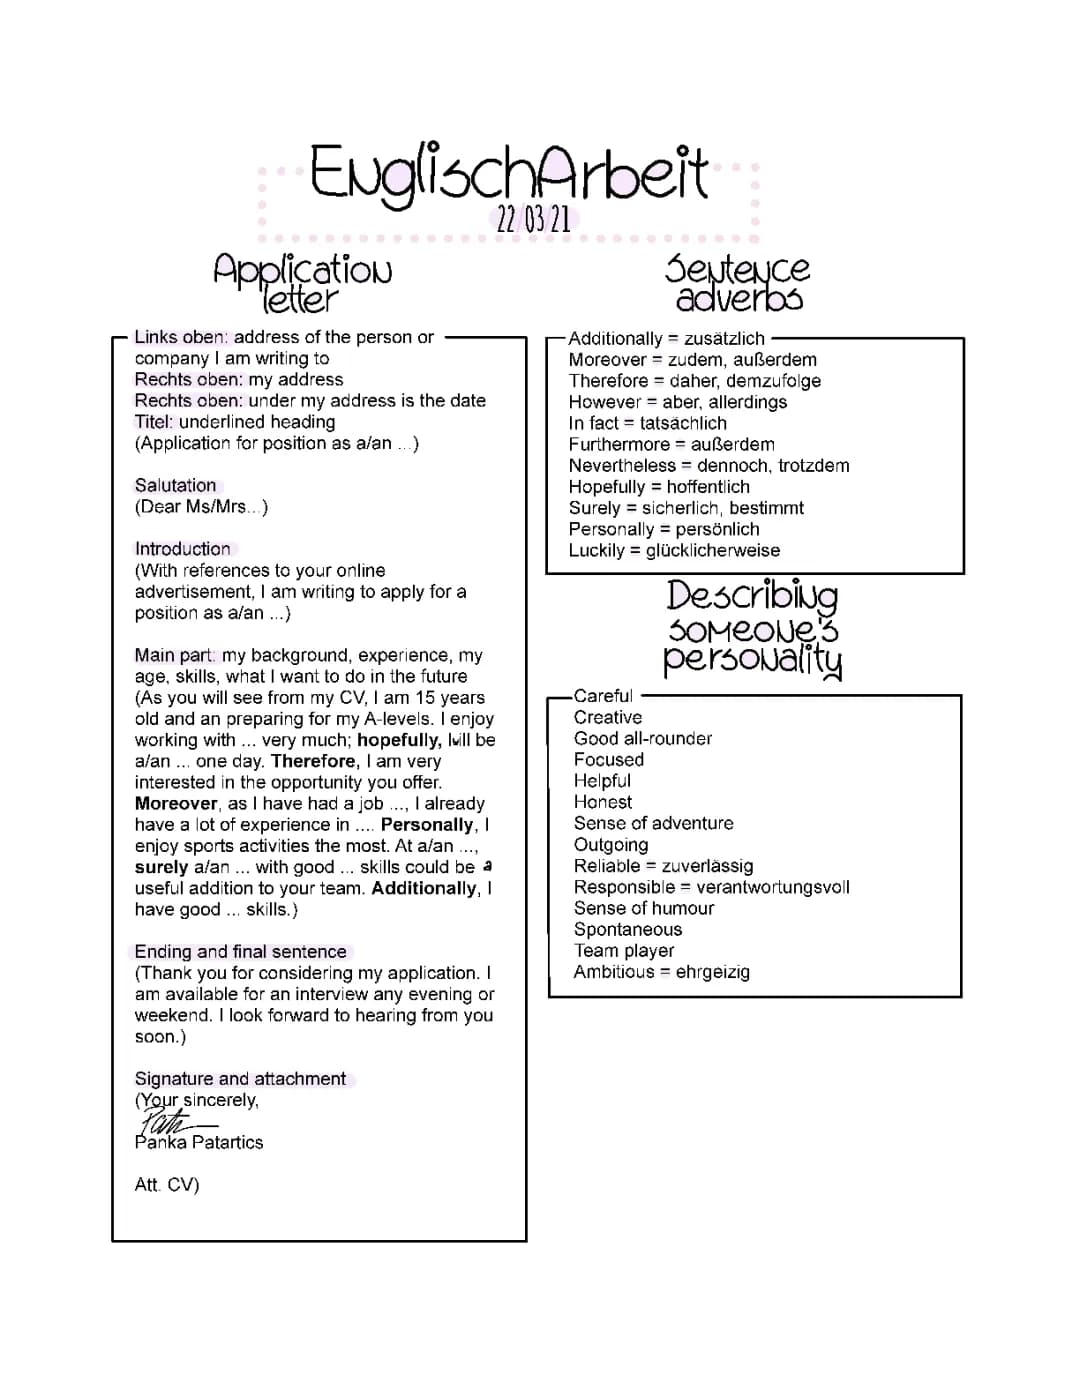 EnglischArbeit
22/03/21
Application
letter
Links oben: address of the person or
company I am writing to
Rechts oben: my address
Rechts oben: under my address is the date
Titel: underlined heading
(Application for position as a/an ...)
Salutation
(Dear Ms/Mrs...)
Introduction
(With references to your online
advertisement, I am writing to apply for a
position as a/an ...)
Main part: my background, experience, my
age, skills, what I want to do in the future
(As you will see from my CV, I am 15 years
old and an preparing for my A-levels. I enjoy
working with ... very much; hopefully, I will be
a/an ... one day. Therefore, I am very
interested in the opportunity you offer.
Moreover, as I have had a job ..., I already
have a lot of experience in .... Personally, I
enjoy sports activities the most. At a/an ...,
surely a/an ... with good ... skills could be a
useful addition to your team. Additionally, I
have good ... skills.)
Ending and final sentence
(Thank you for considering my application. I
am available for an interview any evening or
weekend. I look forward to hearing from you
soon.)
Signature and attachment
(Your sincerely,
Panka Patartics
Att. CV)
Sentence
adverbs
Additionally = zusätzlich
Moreover = zudem, außerdem
Therefore = daher, demzufolge
However = aber, allerdings
In fact = tatsächlich
Furthermore = außerdem
Nevertheless = dennoch, trotzdem
Hopefully = hoffentlich
Surely = sicherlich, bestimmt
Personally = persönlich
Luckily = glücklicherweise
Describing
someone's
personality
Careful
Creative
Good all-rounder
Focused
Helpful
Honest
Sense of adventure
Outgoing
Reliable = zuverlässig
Responsible = verantwortungsvoll
Sense of humour
Spontaneous
Team player
Ambitious = ehrgeizig